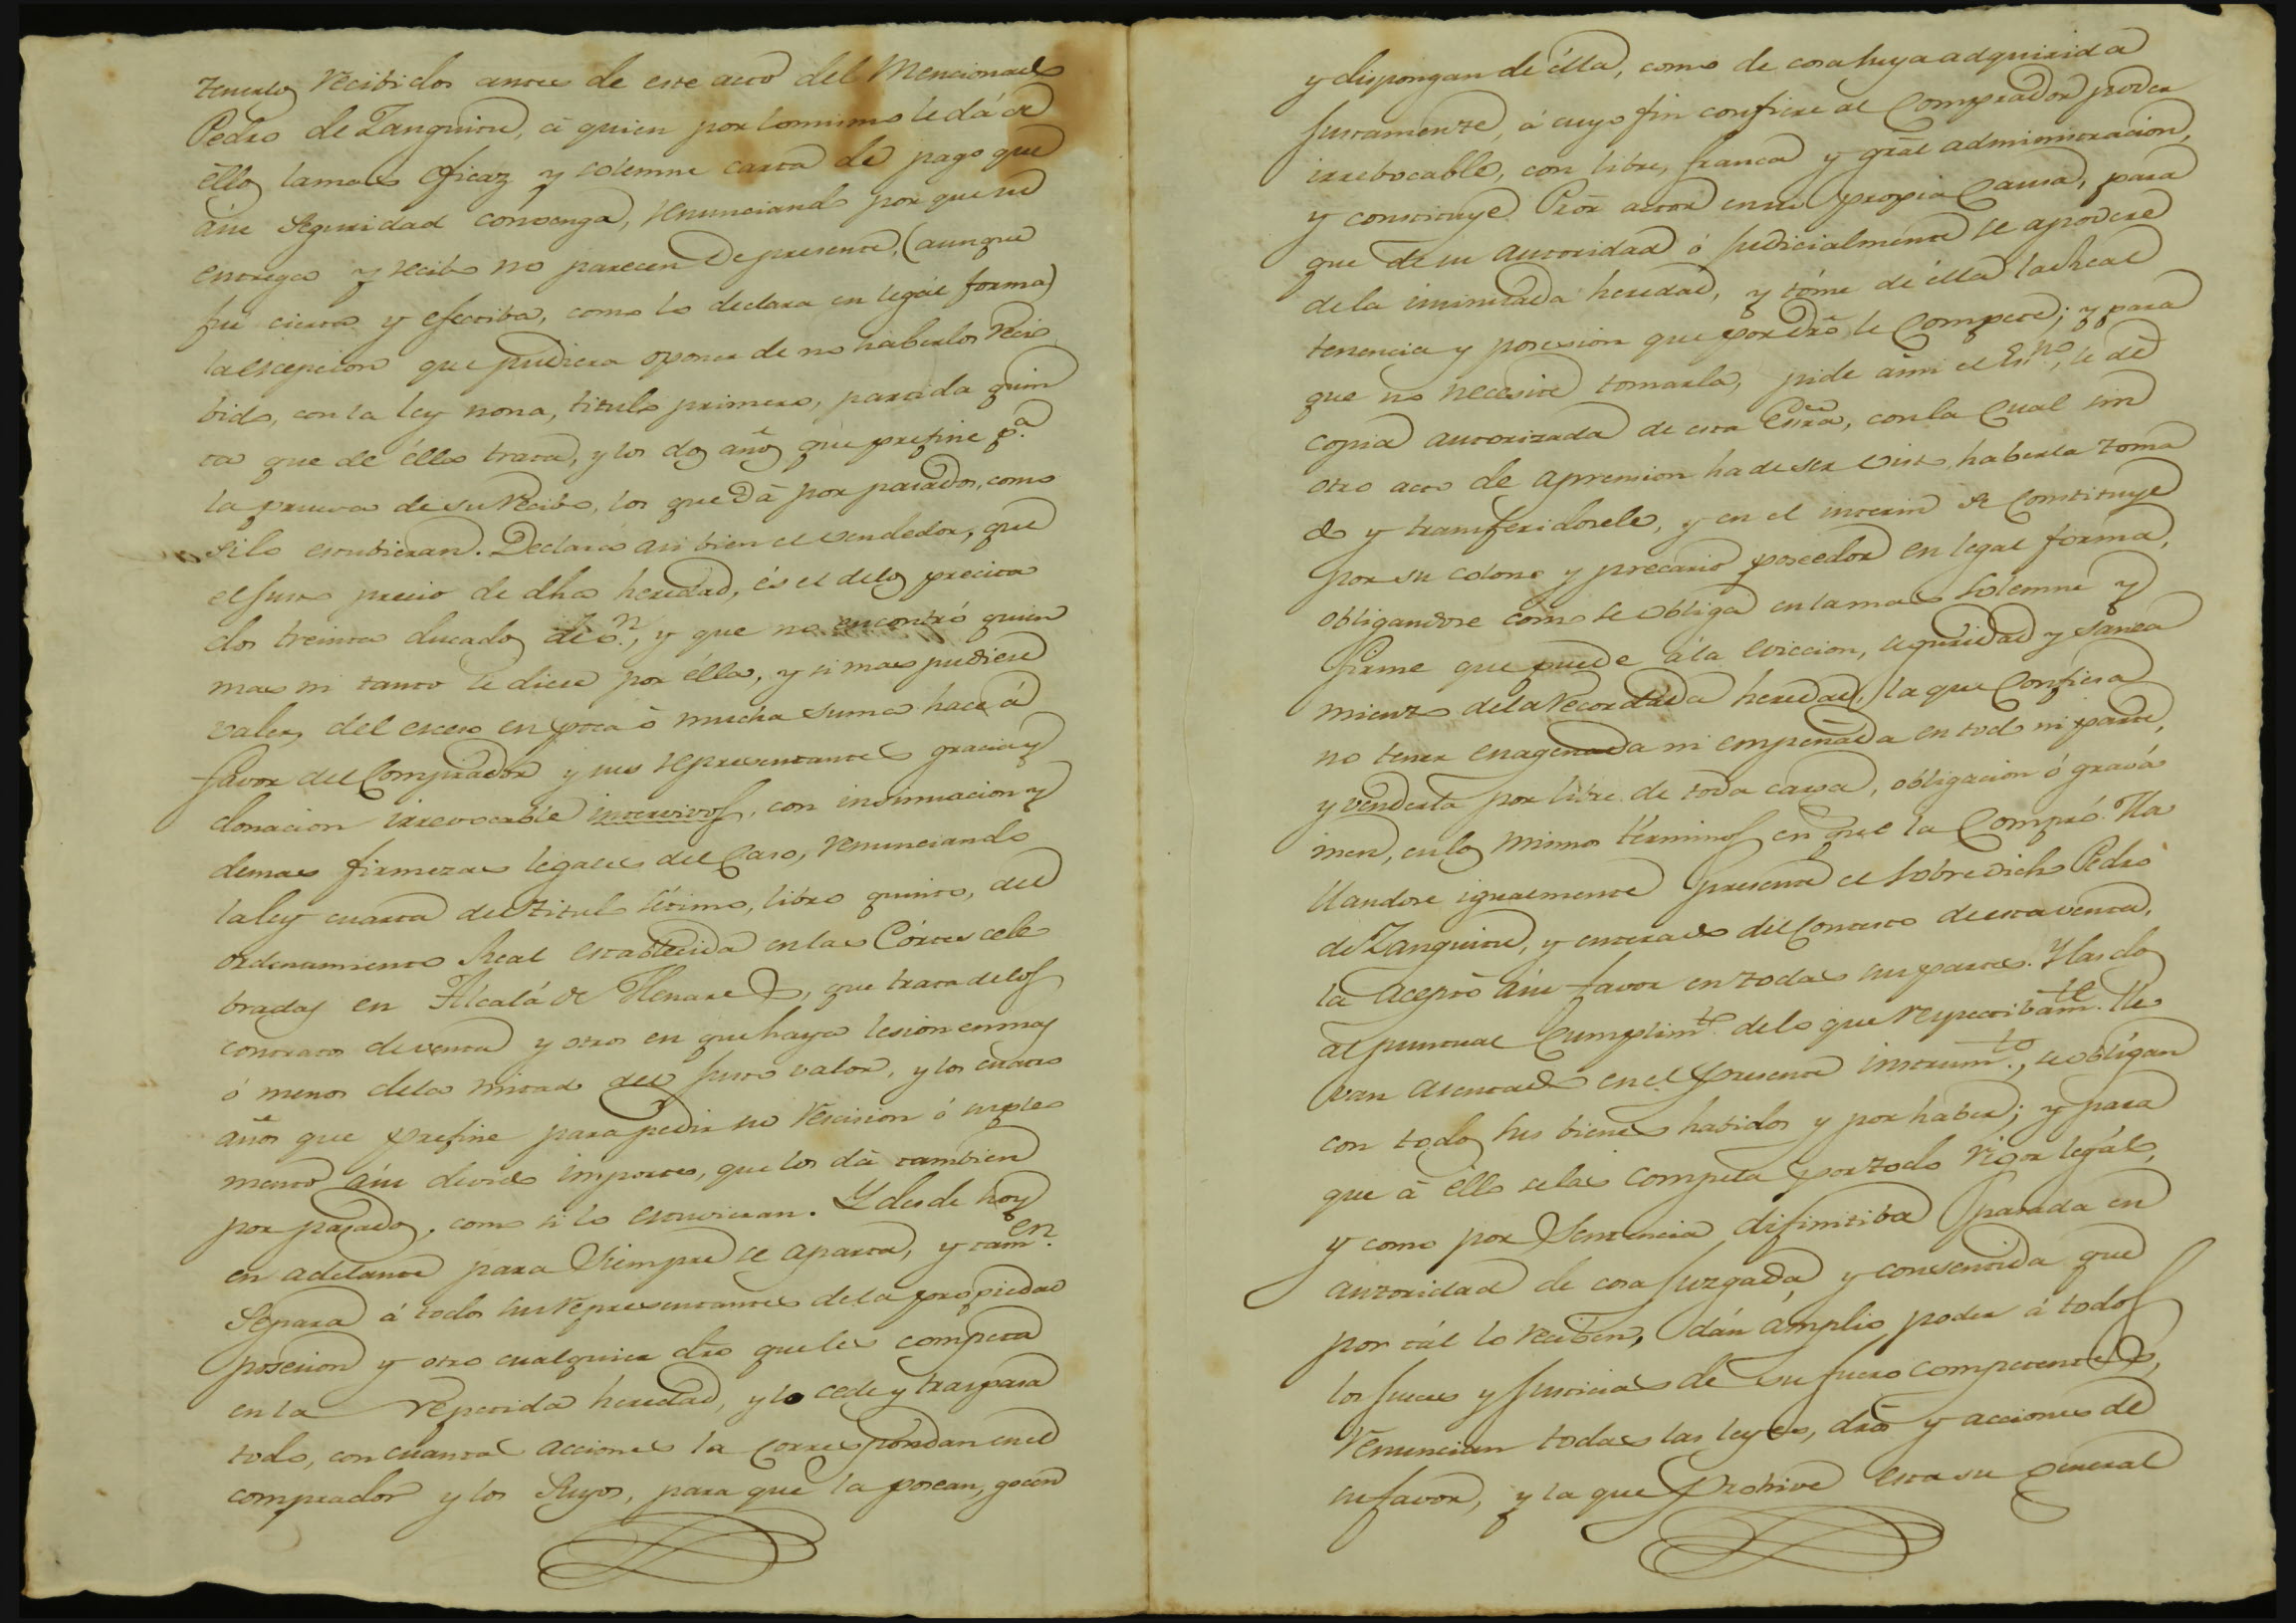 tenerlos recibidos antes de este acto del mencionado
Pedro de Zanguitu, á quien por lo mismo le dá de
éllos la mas eficaz y solemne carta de pago que
á su seguridad convenga, renunciando por que su
entrega y recibo no parecen de presente, (aunque
fue cierta y efectiba, como lo declara en legál forma)
la escepcion que pudiera oponer de no haberlos reci
bido, con la ley nona, titulo primero, partida quin
ta que de éllo trata, y los dos añõs que prefine p.ª
la prueva de su recibo, los que dá por pasados, como
si lo estubieran. Declara asi bien el vendedor, que
el justo precio de dha heredad, és el de los precita
dos treinta ducados de v.n, y que no encontró quien
mas ni tanto le diese por élla, y si mas pudiere
valer, del esceso en poca ó mucha suma hace á
favor del Comprador y sus representantes gracia y
donacion irrevocable intervivos, con insinuacion y
demas firmezas legales del Caso, renunciando
la ley cuarta del titulo setimo, libro quinto, del
ordenamiento Real establecida en las Córtes cele
bradas en Alcalá de Henares, que trata de los
contratos de venta y otros en que haya lesion en mas
ó menos de la mitad del justo valor, y los cuatro
añõs que prefine para pedir su rescision ó suple
mento á su devido importe, que los dá tambien
por pasados, como si lo estuvieran. Y desde hoy
en adelante para siempre se aparta, y tam.en
separa á todos sus representantes de la propiedad
posesion y otro cualquier dro que les competa
en la repetida heredad, y lo cede y traspasa
todo, con cuantas acciones la correspondan en el
comprador y los suyos, para que la posean, gocen
y dispongan de élla, como de cosa suya adquirida
justamente, á cuyo fin confiere al Comprador poder
irrebocable, con libre, franca y grãl administracion,
y constituye Prõr actor en su propia Causa, para
que de su autoridad ó judicialmente se apodere
de la insinuada heredad, y tóme de élla la Real
tenencia y posesion que por drõ le Compete; y para
que no necesite tomarla, pide á mi el Es.no, le dé
copia autorizada de esta Essra, con la Cual sin
otro acto de aprension ha de ser visto haberla toma
do y transferidosele, y en el interin se Constituye
por su colono y precario poseedor en legal forma,
obligandose como se obliga en la mas solemne y
firme que puede á la eviccion, seguridad y sanea
miento de la recordada heredad, la que Confiesa
no tener enagenada ni empeñada en todo ni parte,
y venderla por libre de toda carga, obligacion ó gravá
men, en los mismos términos en que la Compró. Ha
llandose igualmente presente el sobredicho Pedro
de Zanguitu, y enterado del Contesto de esta venta,
la aceptó á su favor en todas sus partes. Y las dos
al puntual Cumplim.to de lo que respectibam.te lle
van asentado en el presente instrum.to, se obligan
con todos sus bienes habidos y por haber; y para
que á éllo se las compela por todo rigor legál,
y como por Sentencia difinitiba pasada en
autoridad de cosa juzgada, y consentida que
por tál lo reciben, dán ámplio poder á todos
los jueces y justicias de su fuero competentes,
renuncian todas las leyes, drõs y acciones de
su favor, y la que prohive esta su general